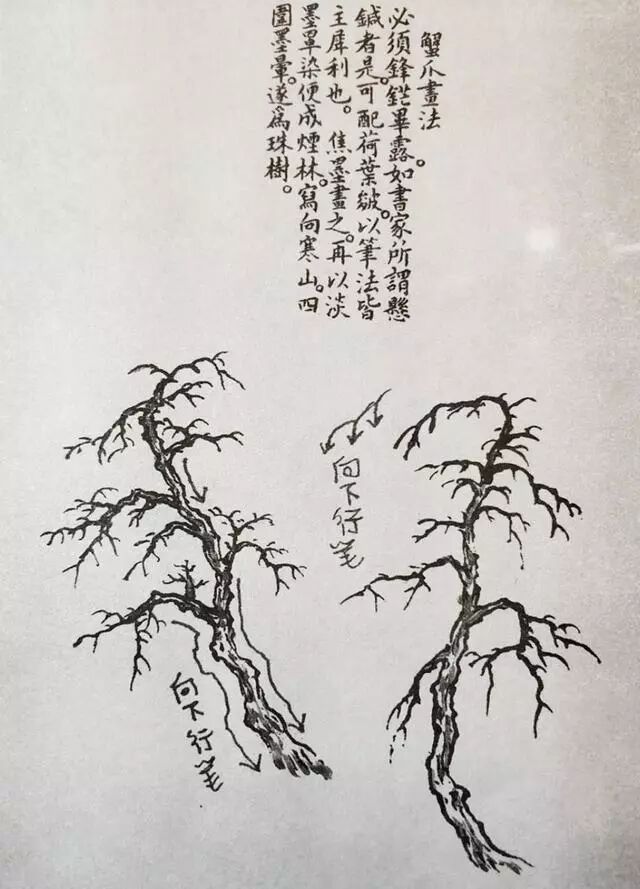 蟹爪畫法
必須鋒鋩畢露。如書家所謂懸
鍼者是。可配荷葉皴。以筆法皆
主犀利也。焦墨畫之。再以淡
墨罩染便成煙林。寫向寒山。四
圍墨暈。遂為珠樹。
向下行笔
向下行笔